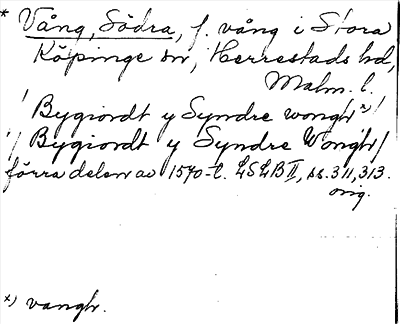 * Vång, Södra, f. vång i Stora
Köpinge sn, Herrestads hd,
Malm. l.
/ Bygiordt y Syndre wonghr x) /
/ Bygiordt y Syndre Wonghr /
förra delen av 1570-t. LSLB II, ss. 311, 313.
orig.
x) vanghr.